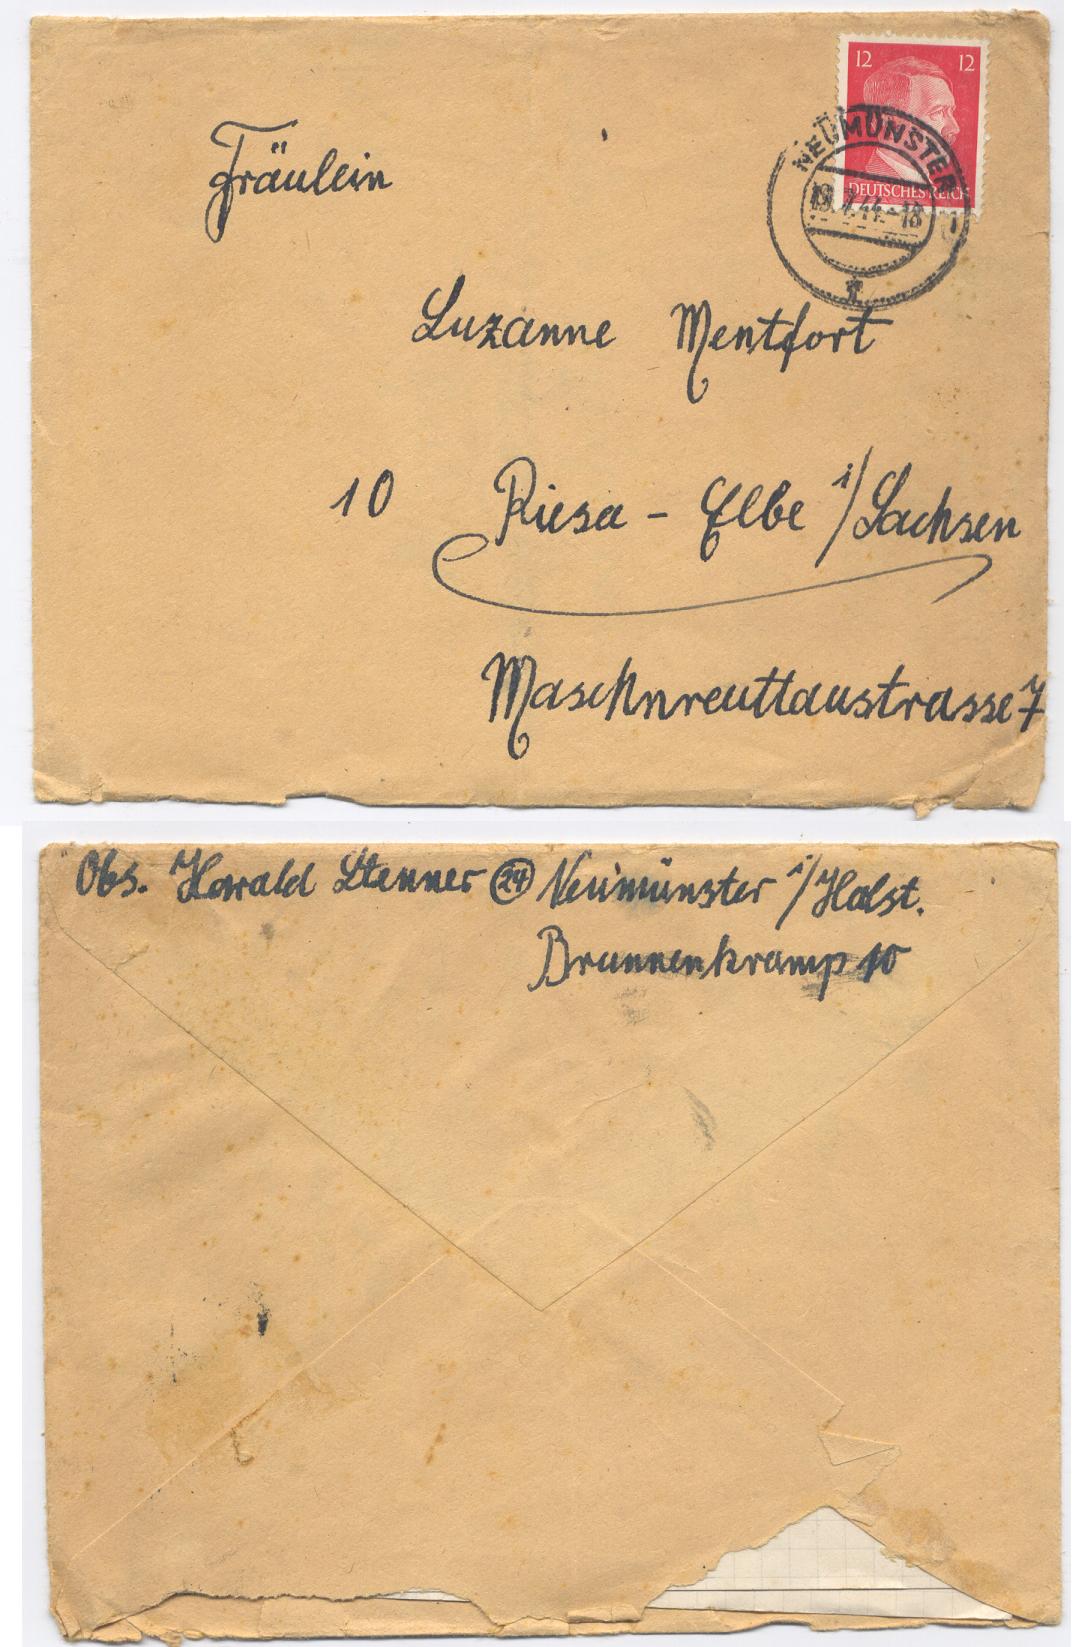 12 12
DEUTSCHES REICH
NEUMÜNSTER
19.7.44.-18
Fräulein
Suzanne Mentfort
10 Riesa - Elbe i/Sachsen
Maschnreuttaustrasse 7
Obs. Harald Stenner 24 Neumünster i/Holst.
Brunnenkramp 10